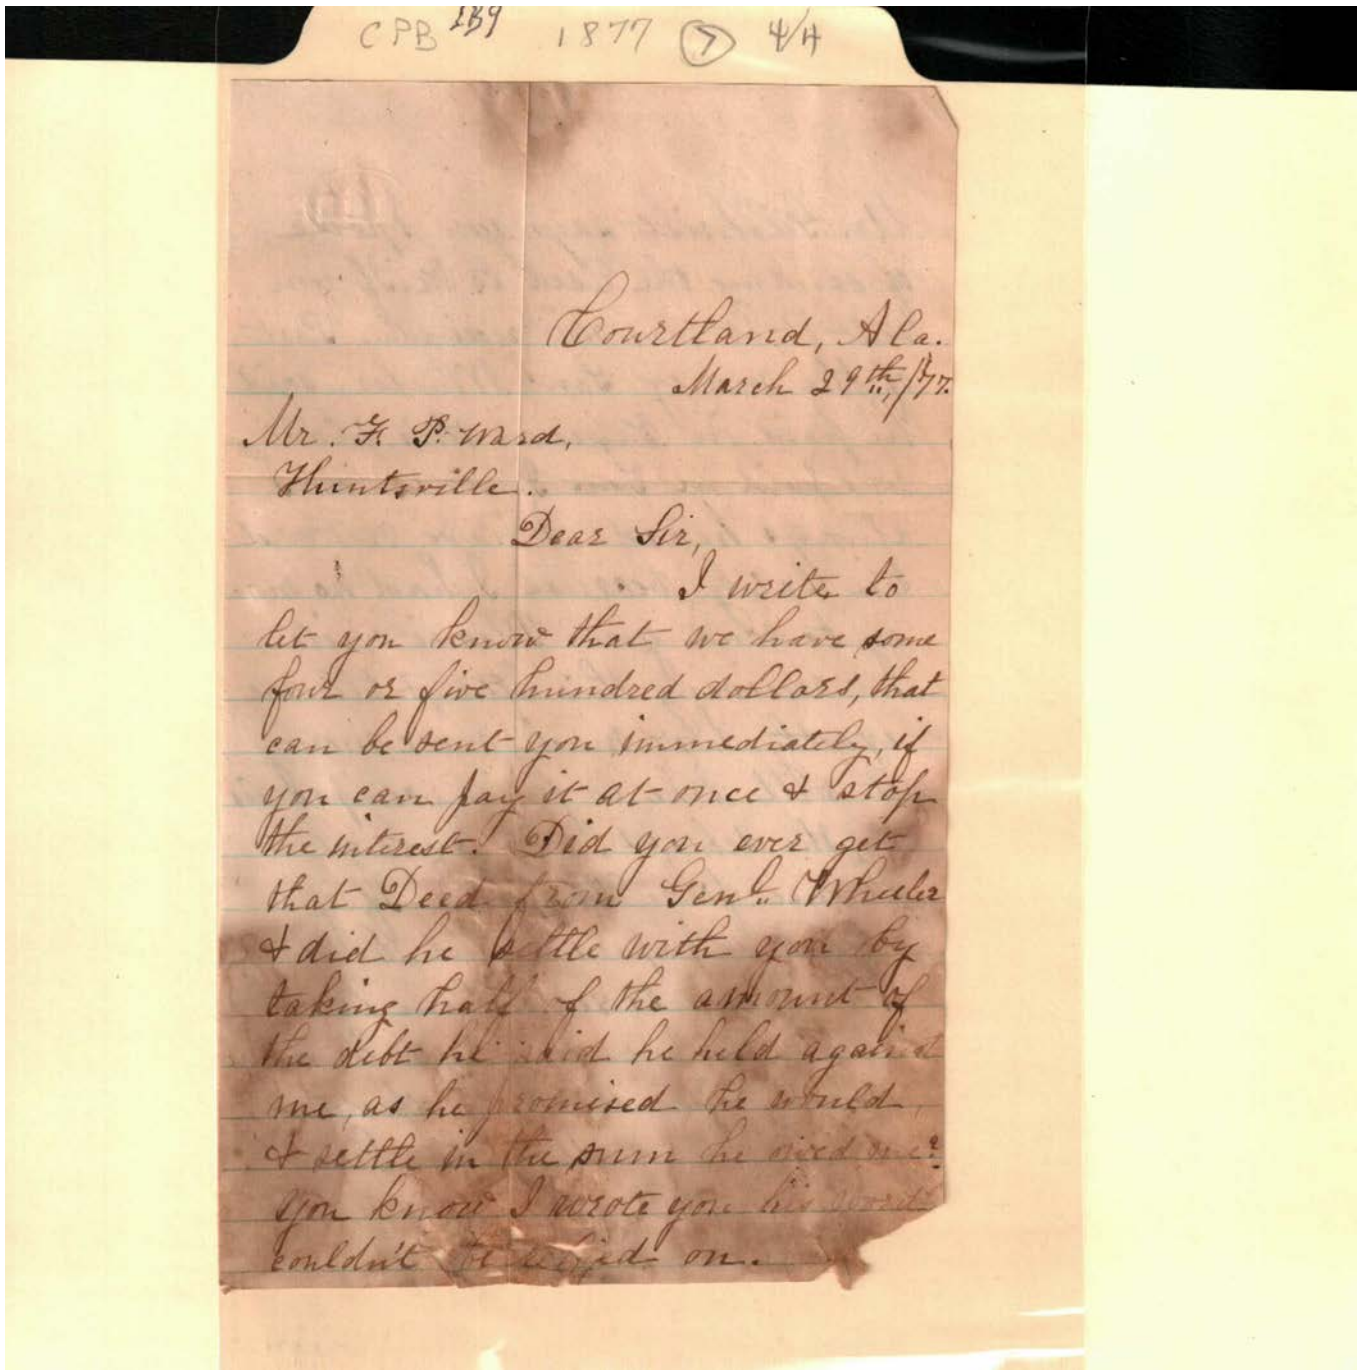 CPB 1877 (7) 4/4
Courtland, Ala.
March 29th, /77.
Mr. F. P. Ward,
Huntsville.
Dear Sir,
I write to
let you know that we have some
four or five hundred dollars, that
can be sent you immediately, if
you can pay it at once & stop
the interest. Did you ever get
that Deed from Genl. Wheeler
& did he settle with you by
taking half of the amount of
the debt he said he held against
me, as he promised he would,
& settle in the sum he owed me?
you know I wrote you his word
couldn't be relied on.